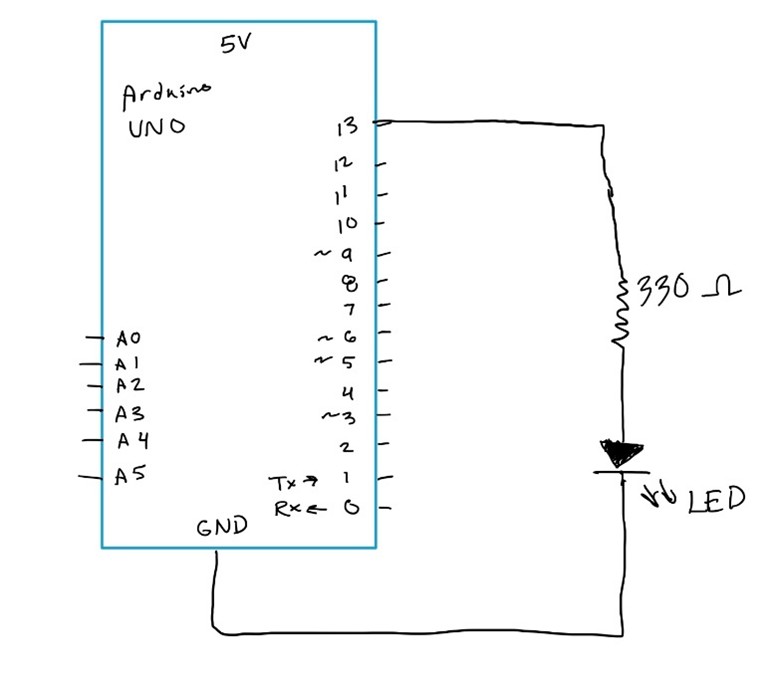 5V
Arduino
UNO
13
12
11
10
~ 9
8
7
~ 6
~ 5
4
~3
2
Tx→ 1
Rx← 0
A0
A1
A2
A3
A4
A5
GND
330 Ω
LED